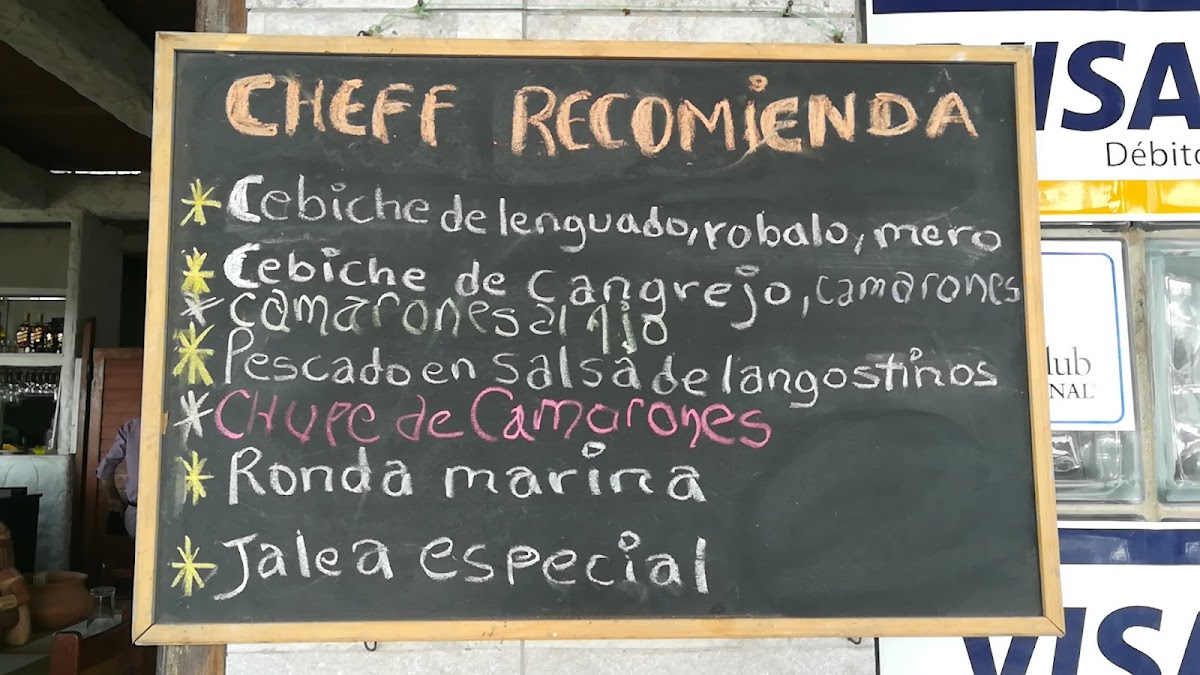 CHEFF RECOMIENDA
* Cebiche de lenguado, robalo, mero
* Cebiche de cangrejo, camarones
* camarones al ajo
* Pescado en salsa de langostinos
* CHUPE de Camarones
* Ronda marina
* Jalea especial
VISA
Débito
VISA